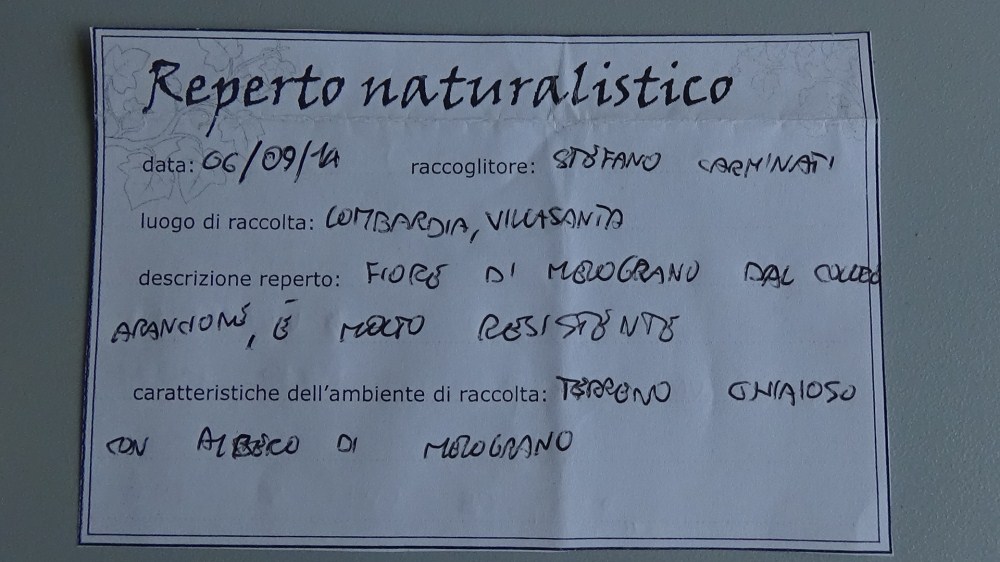 Reperto naturalistico
data: 06/09/14 raccoglitore: STEFANO CARMINATI
luogo di raccolta: LOMBARDIA, VILLASANTA
descrizione reperto: FIORE DI MELOGRANO DAL COLORE
ARANCIONE, È MOLTO RESISTENTE
caratteristiche dell'ambiente di raccolta: TERRENO GHIAIOSO
CON ALBERO DI MELOGRANO